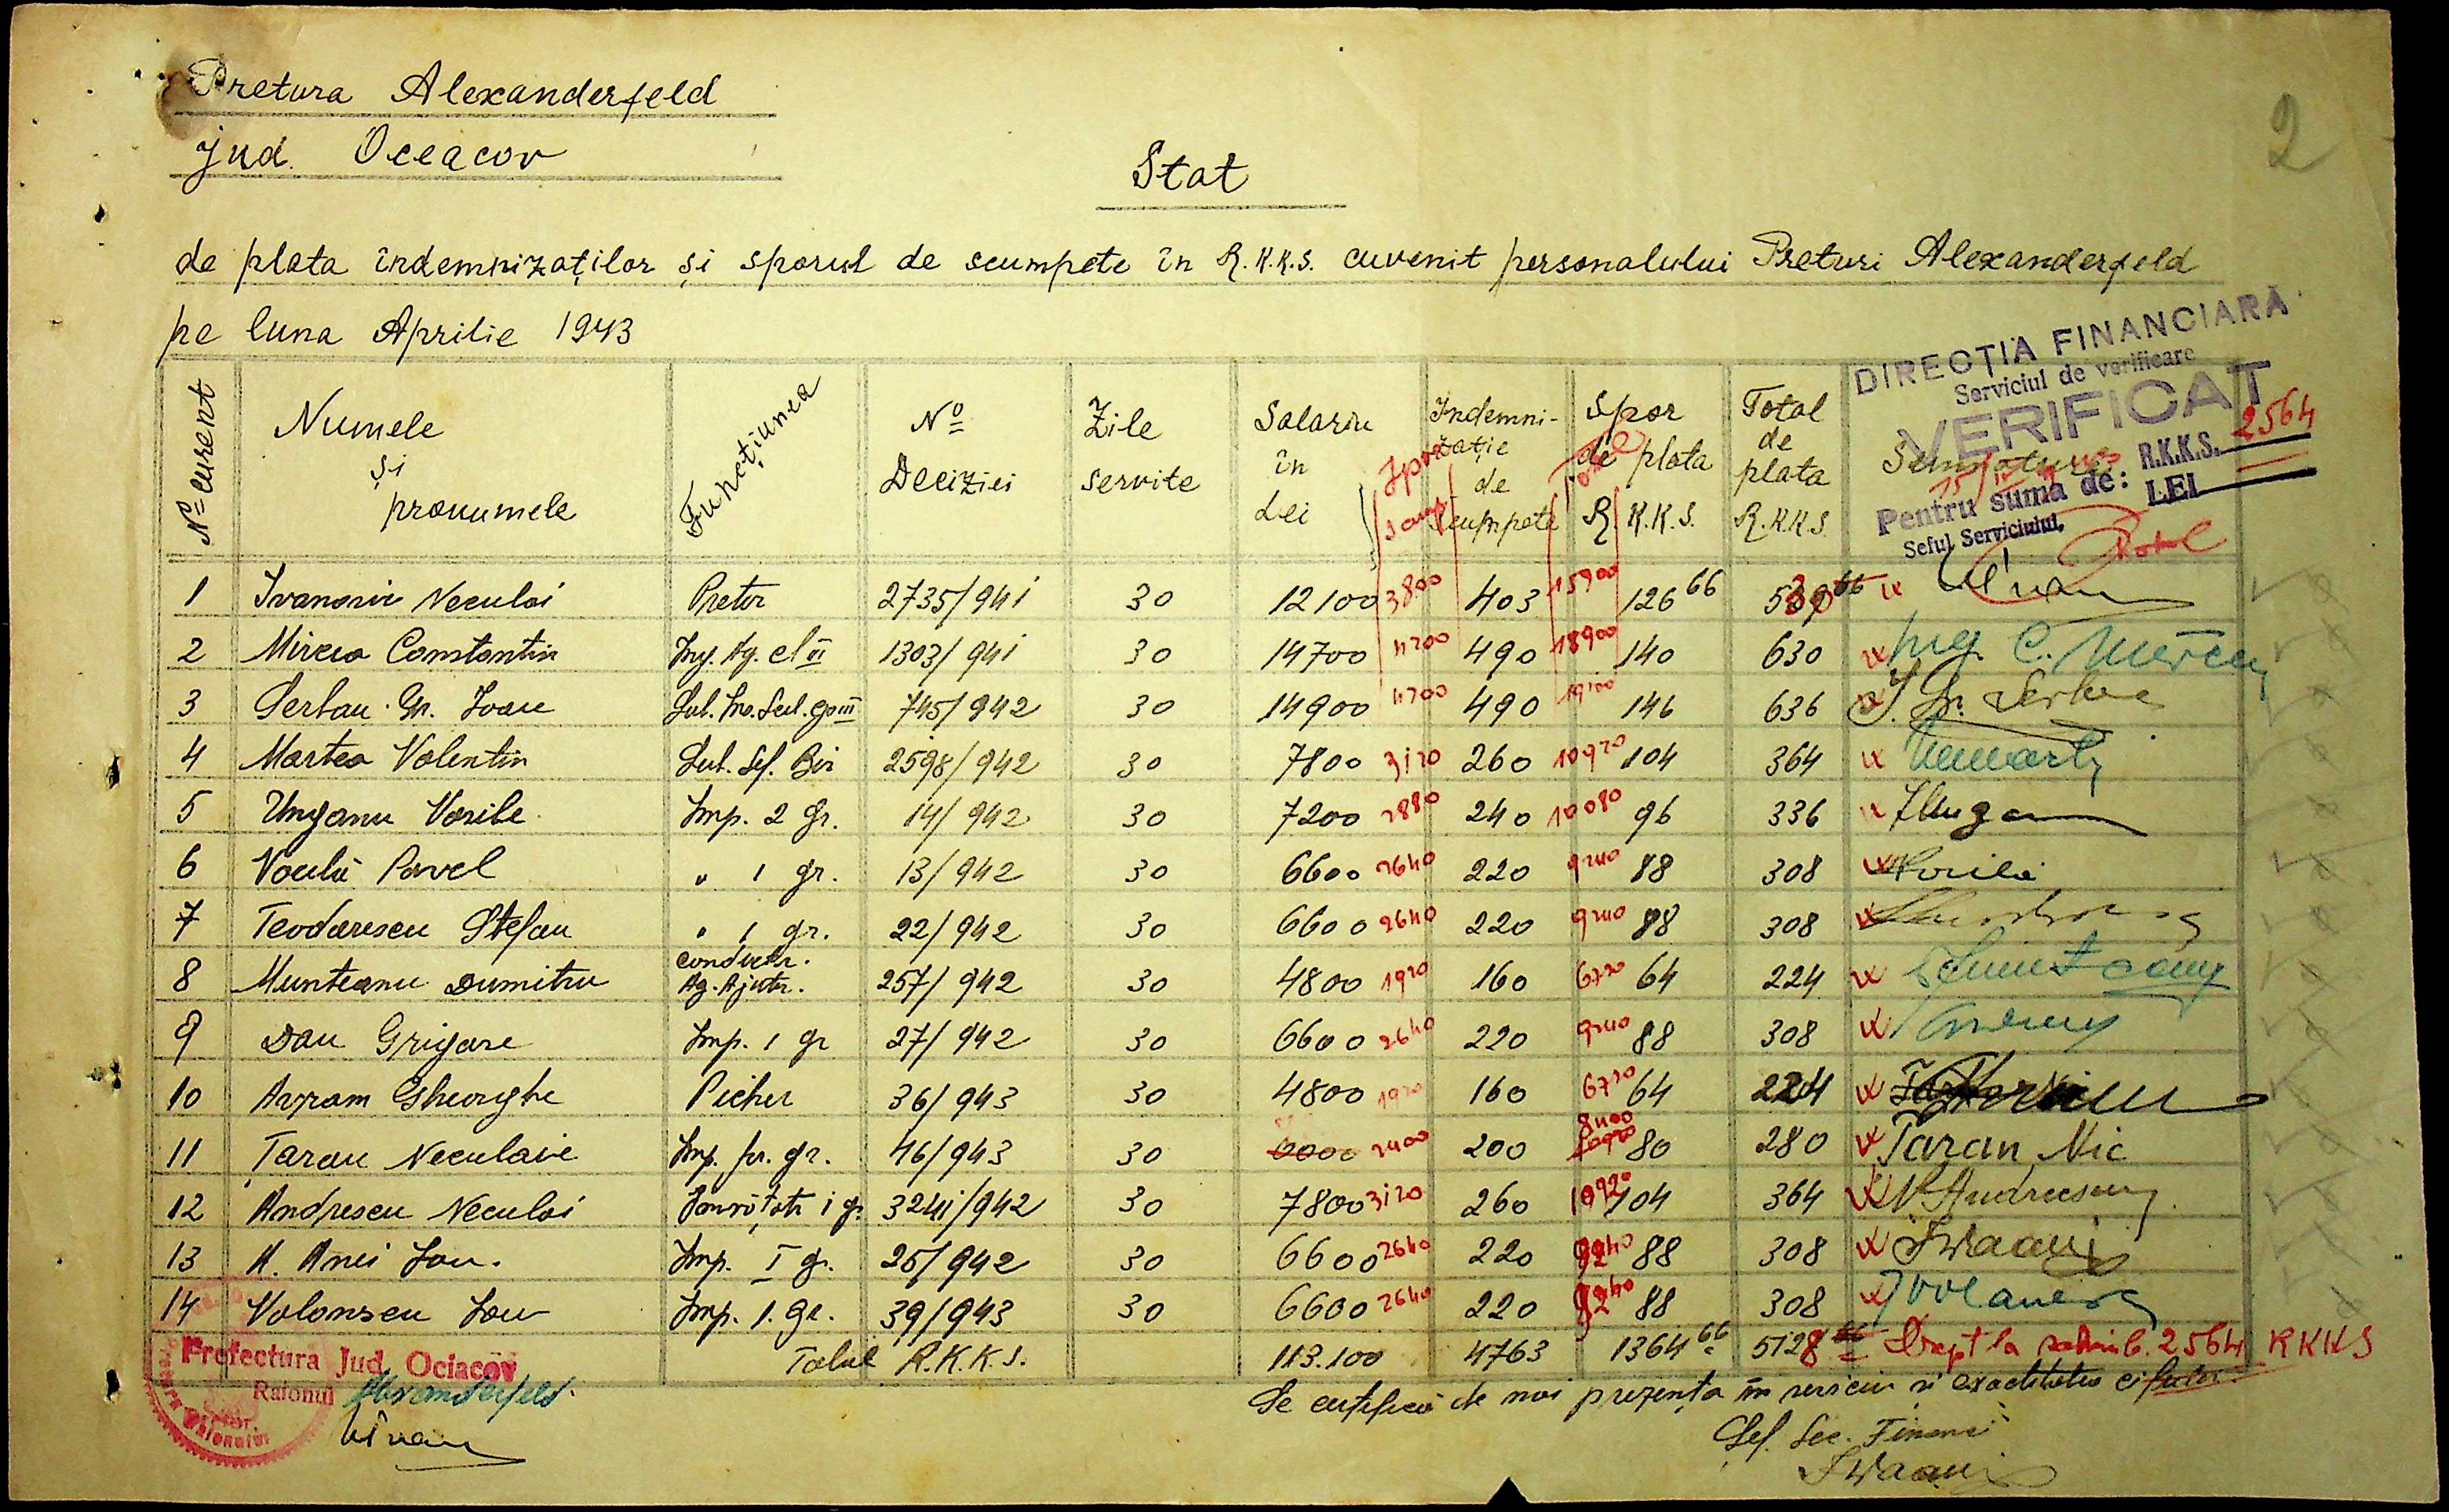 2
Pretura Alexanderfeld
Jud. Oceacov
Stat
de plata îndemnizaților și sporul de scumpete în R.K.K.S. cuvenit personalului Preturi Alexanderfeld
pe luna Aprilie 1943
DIRECȚIA FINANCIARĂ
Serviciul de verificare
VERIFICAT
Pentru suma de: R.K.K.S. 2564
LEI
Șeful Serviciului,
No curent | Numele și pronumele | Funcțiunea | No Deciziei | Zile servite | Salariu în Lei | Indemnizație de scumpete | Spor de plata R.K.K.S. | Total de plata R.K.K.S. | Semnatura
1 Ivanovici Neculai Pretor 2735/941 30 12100 3800 403 15900 126 66
2 Mircea Constantin Ing. Ag. cl VI 1303/941 30 14700 4200 490 18900 140 630 Ing. C. Mircea
3 Serban Gr. Ioan 745/942 30 14900 4700 490 146 636
4 Martea Valentin Sub. Șef. Bir 2598/942 30 7800 3120 260 10920 104 364
5 Unganu Vasile Imp. 2 gr. 14/942 30 7200 2880 240 10080 96 336
6 Pavel " 1 gr. 13/942 30 6600 2640 220 9240 88 308
7 Teodorescu Ștefan " 1 gr. 22/942 30 6600 2640 220 9240 88 308
8 Munteanu Dumitru conductr. Ag. Ajutr. 257/942 30 4800 1920 160 6720 64 224
9 Dan Grigore Imp. 1 gr 27/942 30 6600 2640 220 9240 88 308
10 Avram Gheorghe Picher 36/943 30 4800 1920 160 6720 64 224
11 Țaran Neculaie Imp. pr. gr. 46/943 30 2400 200 8400 80 280 Țaran Nic
12 Andrescu Neculai 3241/942 30 7800 3120 260 10920 104 364 N. Andreescu
13 A. Anei Ion. Imp. I gr. 25/942 30 6600 2640 220 9240 88 308
14 Imp. 1. gr. 39/943 30 6600 2640 220 9240 88 308
Total R.K.K.S. 113.100 4763 1364 66 5128 2564 RKKS
Prefectura Jud. Ociacov
Raionul Alexanderfeld.
Se certifică de noi prezența în serviciu și exactitatea cifrelor
Șef. Sec. Financi